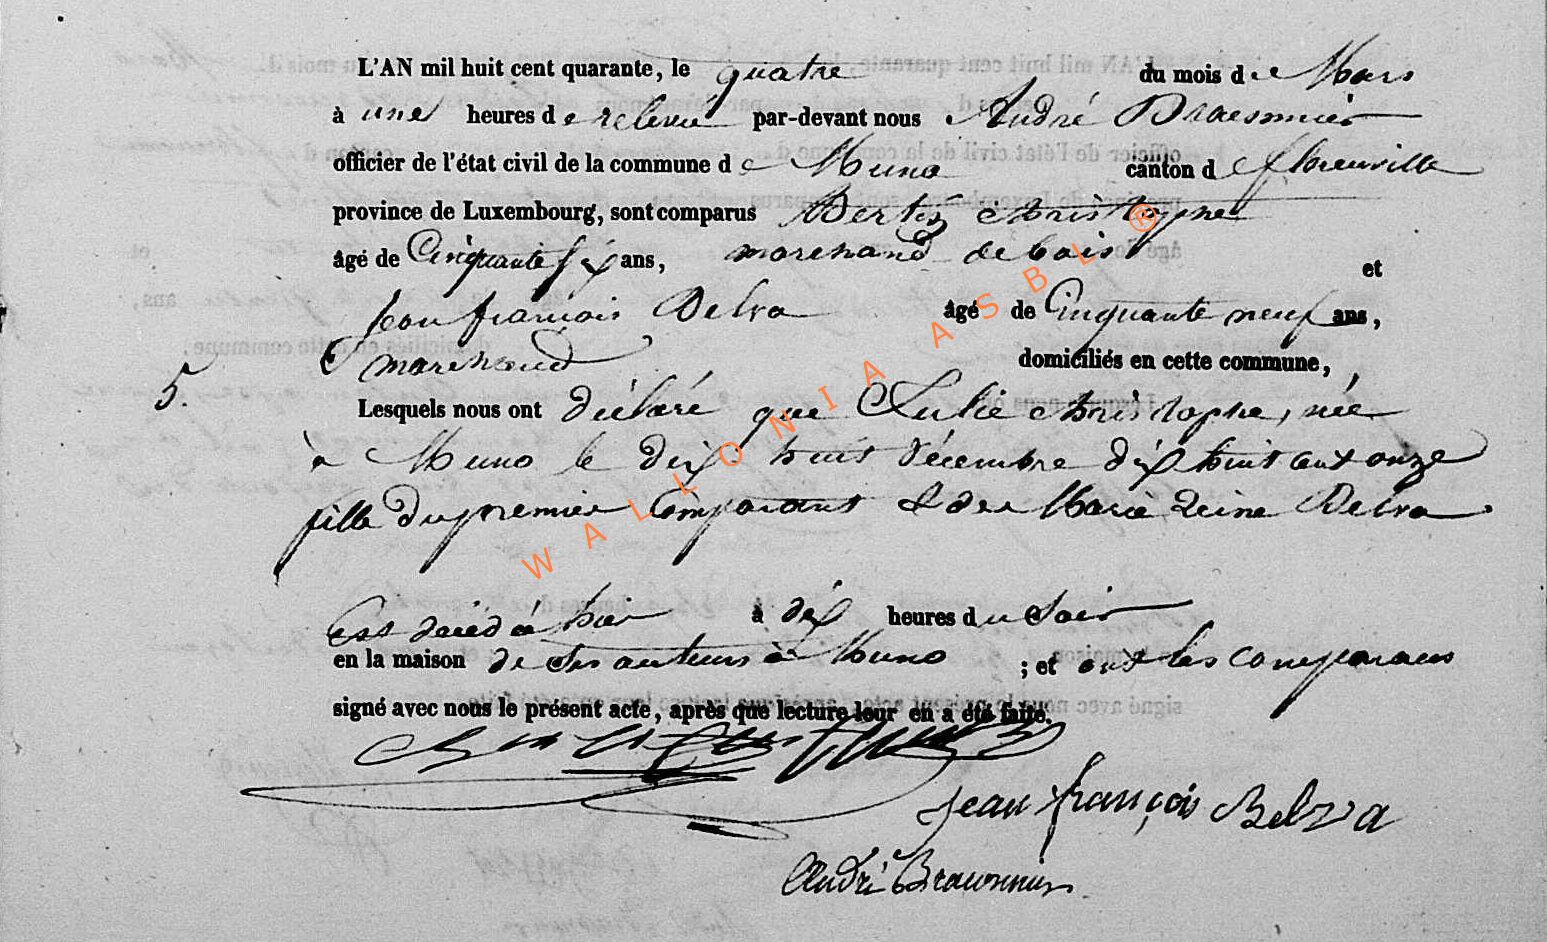 L'AN mil huit cent quarante, le quatre du mois de Mars
à une heures de relevée par-devant nous André
officier de l'état civil de la commune de Muno canton de florenville
province de Luxembourg, sont comparus christophe
âgé de Cinquante six ans, marchand de bois et
jean françois Belva âgé de Cinquante neuf ans,
marchand domiciliés en cette commune,
5.
Lesquels nous ont déclaré que Julie christophe, née
à Muno le dix huit décembre dix huit cent onze
fille du premier Comparant & de Marie Reine Belva
Est décédée hier à dix heures du Soir
en la maison de ses auteurs à Muno ; et ont les comparans
signé avec nous le présent acte, après que lecture leur en a été faite.
jean françois Belva
André
WALLONIA ASBL ®